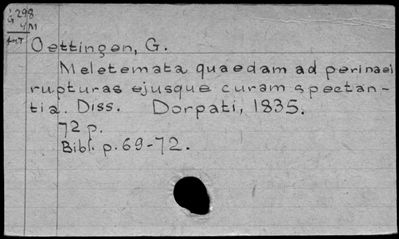 298
Oettingen, G.
Meletemata quaedam ad perinaei
rupturas ejusque curam spectan-
tia. Diss. Dorpati, 1835.
72 p.
Bibl. p. 69-72.